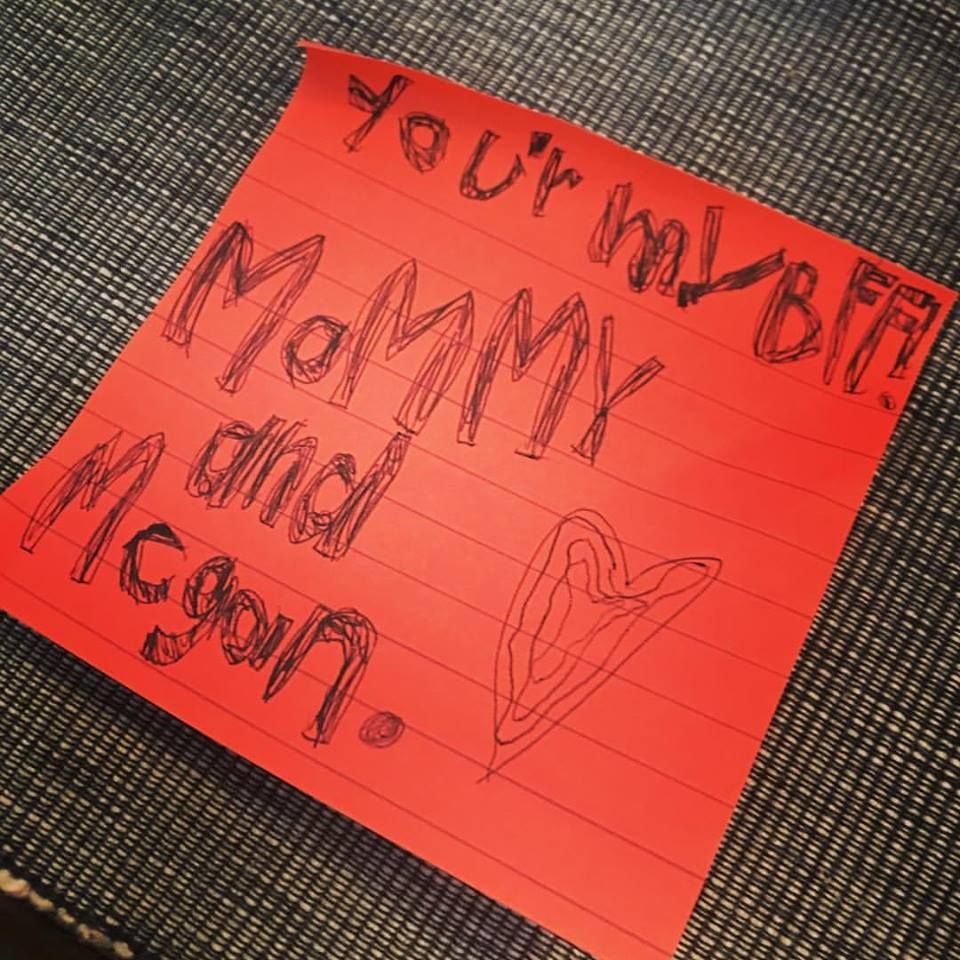 You'r my BFF!
MoMMY
and
Megan.